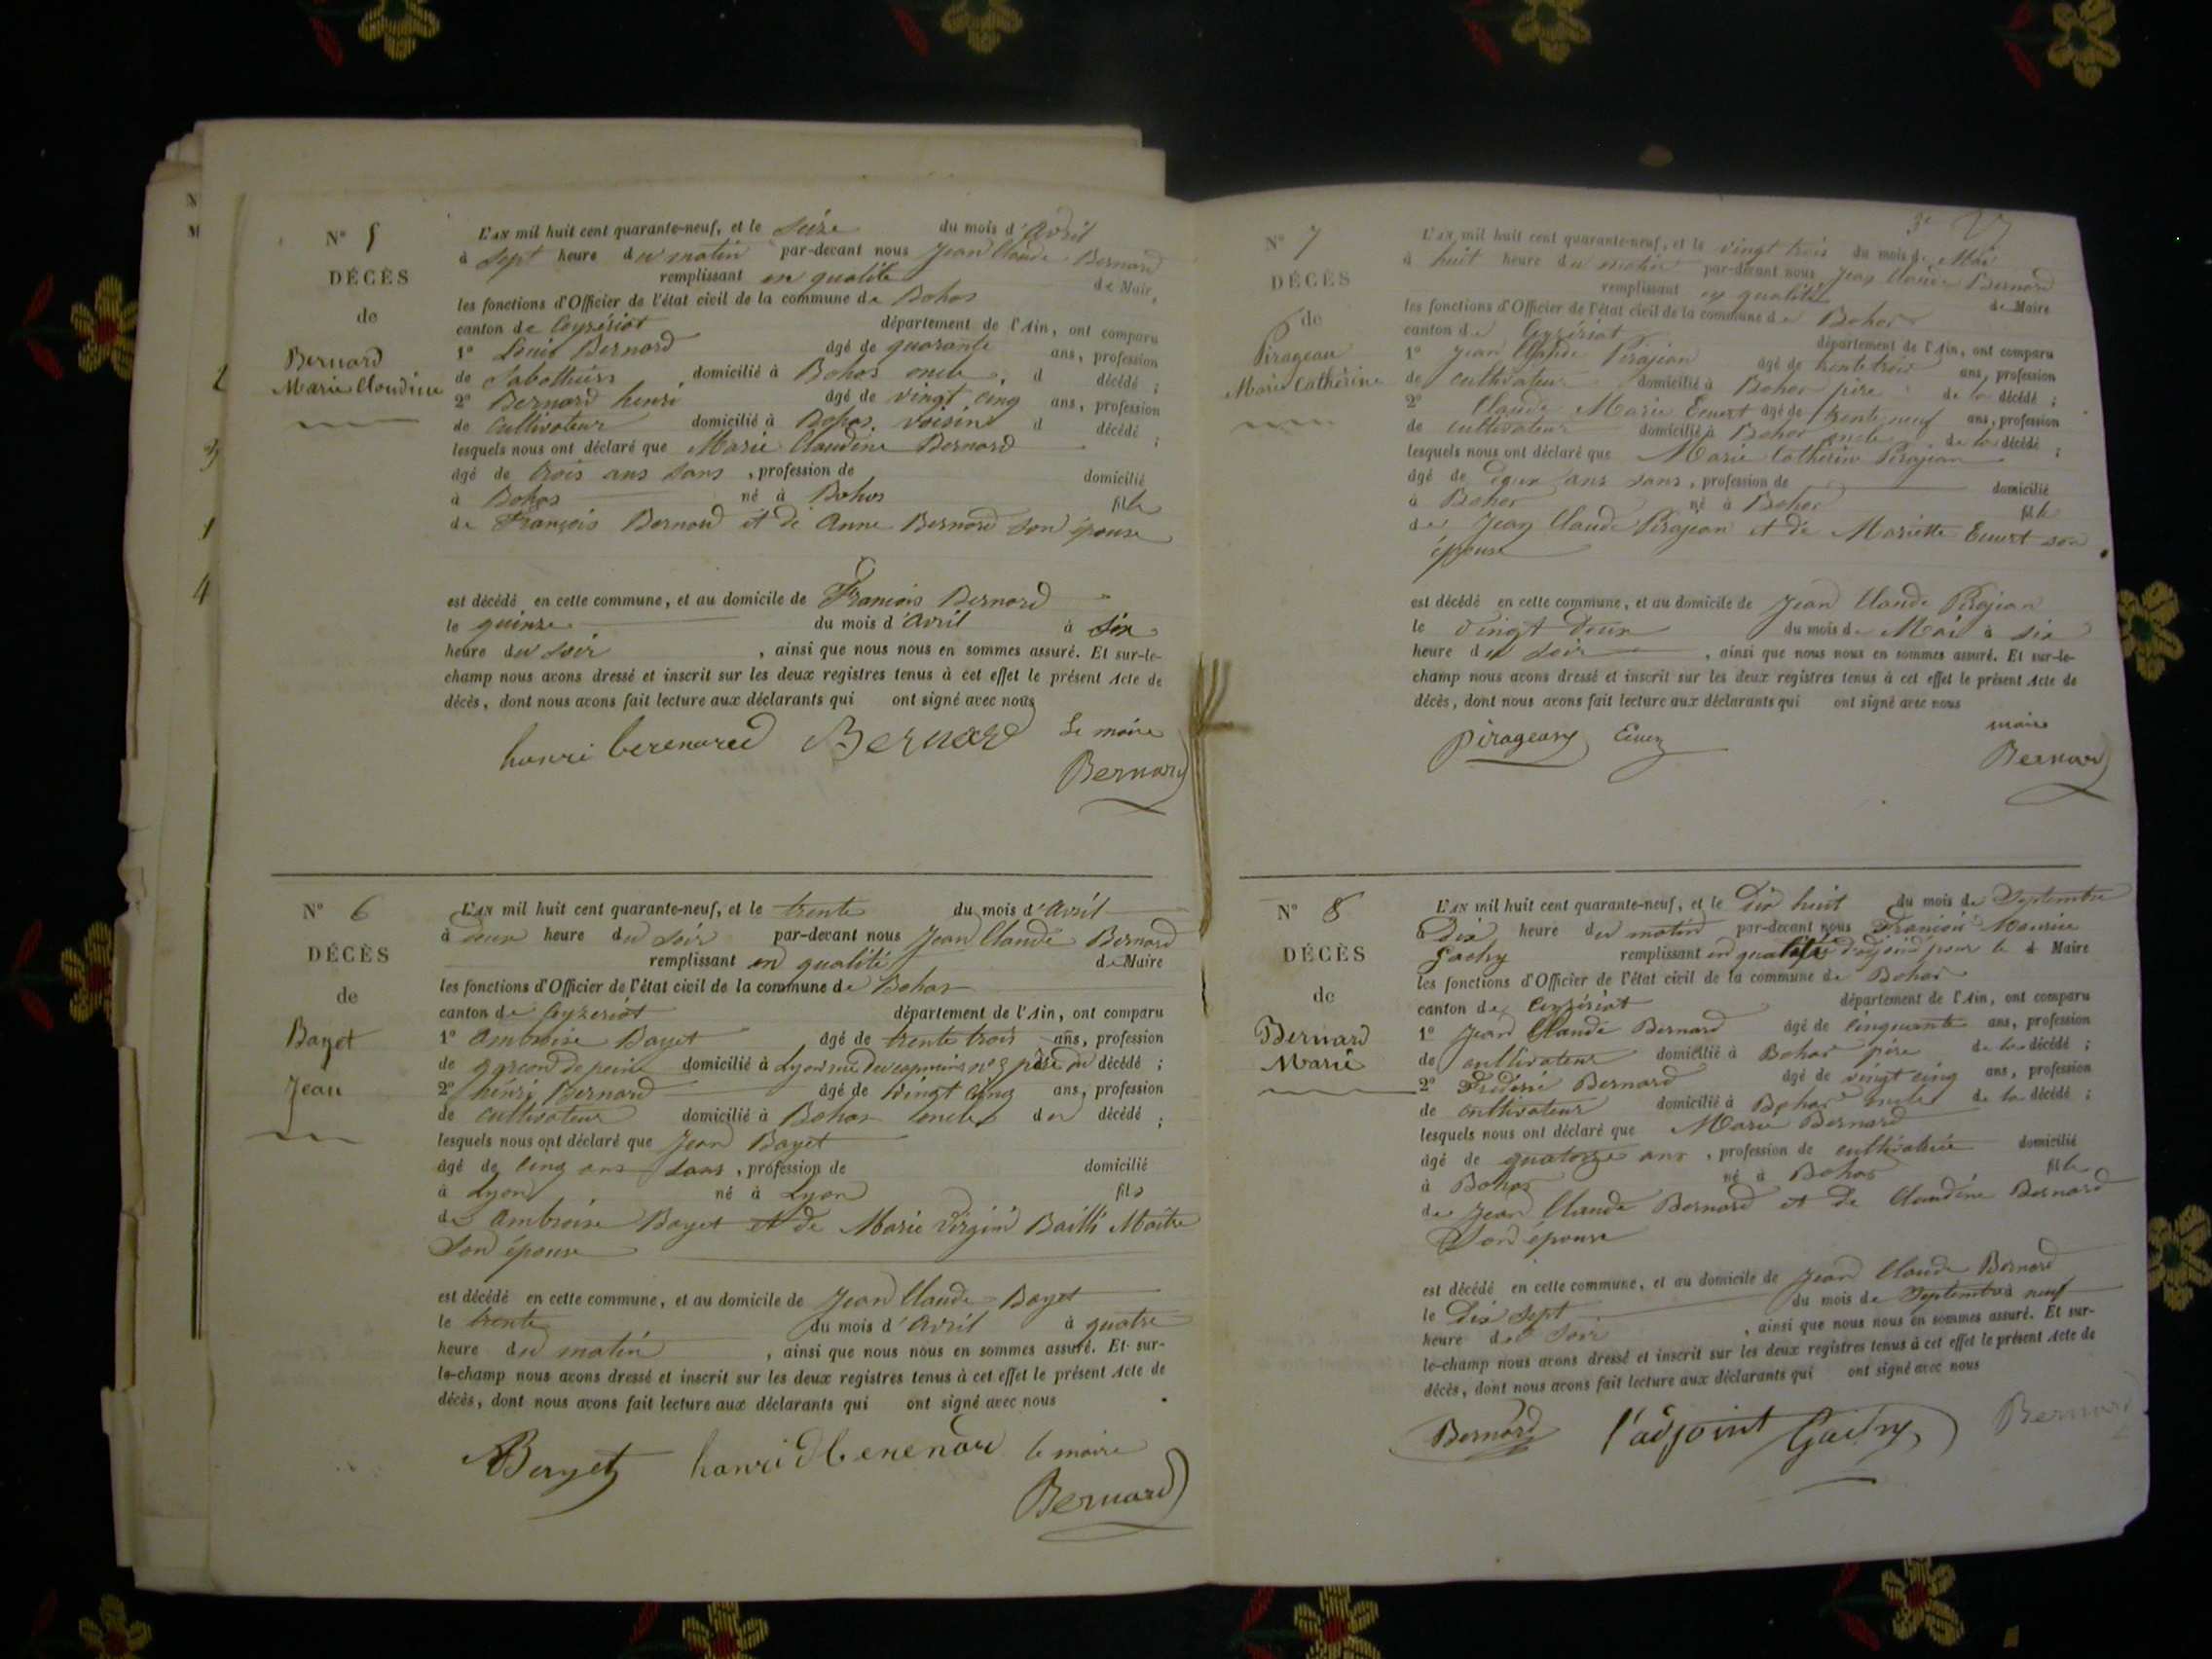 N° 5
DÉCÈS
de
Bernard
Marie Claudine
L'AN mil huit cent quarante-neuf, et le seize du mois d'avril
à sept heure du matin par-devant nous Jean Claude Bernard
remplissant en qualité de Maire,
les fonctions d'Officier de l'état civil de la commune de Bohas
canton de Ceyzériat département de l'Ain, ont comparu
1° Louis Bernard âgé de quarante ans, profession
de Sabothiers, domicilié à Bohas oncle, d décédé ;
2° Bernard henri âgé de vingt cinq ans, profession
de Cultivateur domicilié à Bohas, voisin d décédé ;
lesquels nous ont déclaré que Marie Claudine Bernard
âgé de trois ans sans, profession de domicilié
à Bohas né à Bohas fille
de François Bernard et de Anne Bernard son épouse
est décédé en cette commune, et au domicile de François Bernard
le quinze du mois d'avril à six
heure du soir, ainsi que nous nous en sommes assuré. Et sur-le-
champ nous avons dressé et inscrit sur les deux registres tenus à cet effet le présent Acte de
décès, dont nous avons fait lecture aux déclarants qui ont signé avec nous
henri berenared Bernard Le maire
Bernard
N° 6
DÉCÈS
de
Bayet
Jean
L'AN mil huit cent quarante-neuf, et le trente du mois d'avril
à deux heure du soir par-devant nous Jean Claude Bernard
remplissant en qualité de Maire
les fonctions d'Officier de l'état civil de la commune de Bohas
canton de Ceyzeriat département de l'Ain, ont comparu
1° ambroise Bayet âgé de trente trois ans, profession
de garcon de peine domicilié à Lyon rue des capucins n° père du décédé ;
2° hénri Bernard âgé de vingt cinq ans, profession
de cultivateur domicilié à Bohas oncle du décédé ;
lesquels nous ont déclaré que Jean Bayet
âgé de cinq ans sans, profession de domicilié
à Lyon né à Lyon fils
de ambroise Bayet et de Marie Virgini Bailli Maitre
son épouse
est décédé en cette commune, et au domicile de Jean Claude Bayet
le trente du mois d'avril à quatre
heure du matin, ainsi que nous nous en sommes assuré. Et sur-
le-champ nous avons dressé et inscrit sur les deux registres tenus à cet effet le présent Acte de
décès, dont nous avons fait lecture aux déclarants qui ont signé avec nous
le maire
Bernard
N° 7
DÉCÈS
de
Pirageau
Marie Cathérine
L'AN mil huit cent quarante-neuf, et le vingt trois du mois de Mai
à huit heure du matin par-devant nous Jean Claude Bernard
remplissant en qualité de Maire
les fonctions d'Officier de l'état civil de la commune de Bohas
canton de Ceyzériat département de l'Ain, ont comparu
1° Jean Claude Pirajean âgé de trente trois ans, profession
de cultivateur domicilié à Bohas père de la décédé ;
2° Claude Marie Ecuert âgé de trente neuf ans, profession
de cultivateur domicilié à Bohas oncle de la décédé ;
lesquels nous ont déclaré que Marie Catherine Pirajean
âgé de deux ans sans, profession de domicilié
à Bohas né à Bohas fille
de Jean Claude Pirajean et de Mariette Ecuert son
épouse
est décédé en cette commune, et au domicile de Jean Claude Pirajean
le vingt deux du mois de Mai à six
heure du soir, ainsi que nous nous en sommes assuré. Et sur-le-
champ nous avons dressé et inscrit sur les deux registres tenus à cet effet le présent Acte de
décès, dont nous avons fait lecture aux déclarants qui ont signé avec nous
maire
Bernard
N° 8
DÉCÈS
de
Bernard
Marie
L'AN mil huit cent quarante-neuf, et le Dix huit du mois de Septembre
à Dix heure du matin par-devant nous François Maurice
Gachy remplissant en qualité d'adjoint pour le d Maire
les fonctions d'Officier de l'état civil de la commune de Bohas
canton de Ceyzériat département de l'Ain, ont comparu
1° Jean Claude Bernard âgé de cinquante ans, profession
de cultivateur domicilié à Bohas père de la décédé ;
2° Fréderic Bernard âgé de vingt cinq ans, profession
de cultivateur domicilié à Bohas oncle de la décédé ;
lesquels nous ont déclaré que Marie Bernard
âgé de quatorze ans, profession de cultivatrice domicilié
à Bohas né à Bohas fille
de Jean Claude Bernard et de Claudine Bernard
Son épouse
est décédé en cette commune, et au domicile de Jean Claude Bernard
le Dix sept du mois de Septembre à neuf
heure du soir, ainsi que nous nous en sommes assuré. Et sur-
le-champ nous avons dressé et inscrit sur les deux registres tenus à cet effet le présent Acte de
décès, dont nous avons fait lecture aux déclarants qui ont signé avec nous
Bernard l'adjoint Gachy Bernard